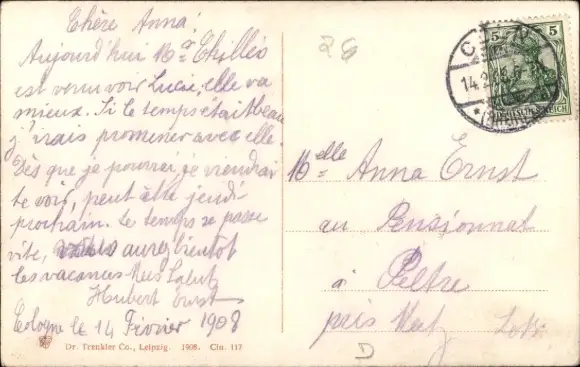 Chère Anna!
Aujourd'hui Mr Chylles
est venu voir Lucie, elle va
mieux. Si le temps était beau
j'irais promener avec elle.
Dès que je pourrai, je viendrai
te voir, peut être jeudi
prochain. Le temps se passe
vite, aurez bientôt
les vacances Mes Saluts
Hubert Ernst
Cologne le 14 Février 1908
Dr. Trenkler Co., Leipzig. 1908. Cin. 117
26
5 5
CÖLN
14.2.
Melle Anna Ernst
au Pensionnat
à Peltre
près Metz Lothr.
D